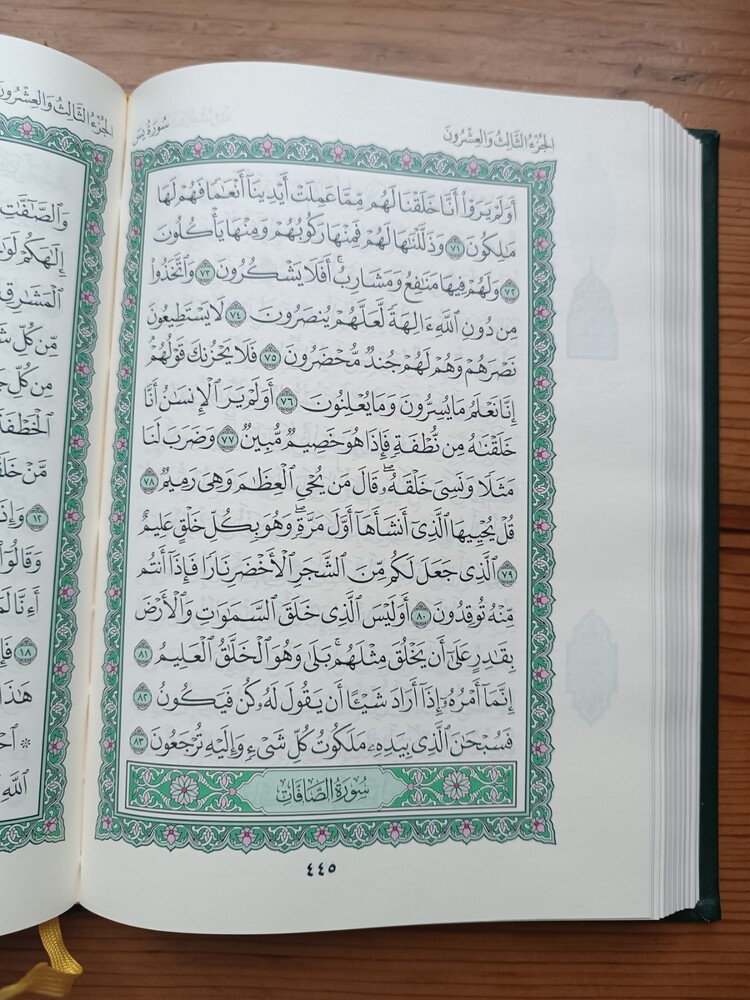 الجزء الثالث والعشرون
سورة يس
أَوَلَمْ يَرَوْا۟ أَنَّا خَلَقْنَا لَهُم مِّمَّا عَمِلَتْ أَيْدِينَآ أَنْعَٰمًا فَهُمْ لَهَا
مَٰلِكُونَ ٧١ وَذَلَّلْنَٰهَا لَهُمْ فَمِنْهَا رَكُوبُهُمْ وَمِنْهَا يَأْكُلُونَ
٧٢ وَلَهُمْ فِيهَا مَنَٰفِعُ وَمَشَارِبُ ۖ أَفَلَا يَشْكُرُونَ ٧٣ وَٱتَّخَذُوا۟
مِن دُونِ ٱللَّهِ ءَالِهَةً لَّعَلَّهُمْ يُنصَرُونَ ٧٤ لَا يَسْتَطِيعُونَ
نَصْرَهُمْ وَهُمْ لَهُمْ جُندٌ مُّحْضَرُونَ ٧٥ فَلَا يَحْزُنكَ قَوْلُهُمْ
إِنَّا نَعْلَمُ مَا يُسِرُّونَ وَمَا يُعْلِنُونَ ٧٦ أَوَلَمْ يَرَ ٱلْإِنسَٰنُ أَنَّا
خَلَقْنَٰهُ مِن نُّطْفَةٍ فَإِذَا هُوَ خَصِيمٌ مُّبِينٌ ٧٧ وَضَرَبَ لَنَا
مَثَلًا وَنَسِىَ خَلْقَهُۥ ۖ قَالَ مَن يُحْىِ ٱلْعِظَٰمَ وَهِىَ رَمِيمٌ ٧٨
قُلْ يُحْيِيهَا ٱلَّذِىٓ أَنشَأَهَآ أَوَّلَ مَرَّةٍ ۖ وَهُوَ بِكُلِّ خَلْقٍ عَلِيمٌ
٧٩ ٱلَّذِى جَعَلَ لَكُم مِّنَ ٱلشَّجَرِ ٱلْأَخْضَرِ نَارًا فَإِذَآ أَنتُم
مِّنْهُ تُوقِدُونَ ٨٠ أَوَلَيْسَ ٱلَّذِى خَلَقَ ٱلسَّمَٰوَٰتِ وَٱلْأَرْضَ
بِقَٰدِرٍ عَلَىٰٓ أَن يَخْلُقَ مِثْلَهُم ۚ بَلَىٰ وَهُوَ ٱلْخَلَّٰقُ ٱلْعَلِيمُ ٨١
إِنَّمَآ أَمْرُهُۥٓ إِذَآ أَرَادَ شَيْـًٔا أَن يَقُولَ لَهُۥ كُن فَيَكُونُ ٨٢
فَسُبْحَٰنَ ٱلَّذِى بِيَدِهِۦ مَلَكُوتُ كُلِّ شَىْءٍ وَإِلَيْهِ تُرْجَعُونَ ٨٣
سورة الصافات
٤٤٥
الجزء الثالث والعشرون
وَٱلصَّٰٓفَّٰتِ
إِلَٰهَكُمْ
ٱلْمَشَٰرِقِ
مِّن كُلِّ
مِن كُلِّ
ٱلْخَطْفَةَ
مَّنْ
١٢ وَإِذَا
وَقَالُوٓا۟
أَءِنَّا
١٨
هَٰذَا
ٱللَّهِ